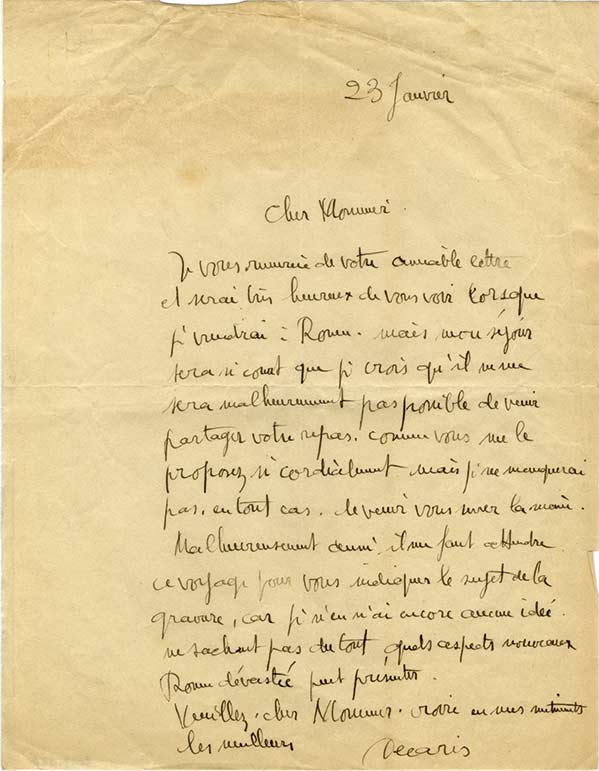 23 Janvier
Cher Monsieur.
Je vous remercie de votre aimable lettre
et serai très heureux de vous voir lorsque
je viendrai à Rouen. mais mon séjour
sera si court que je crois qu'il ne me
sera malheureusement pas possible de venir
partager votre repas. comme vous me le
proposez si cordialement mais je ne manquerai
pas. en tout cas. de venir vous serrer la main.
Malheureusement aussi il me faut attendre
ce voyage pour vous indiquer le sujet de la
gravure, car je n'en n'ai encore aucune idée.
ne sachant pas du tout quels aspects nouveaux
Rouen dévastée peut présenter.
Veuillez. cher Monsieur. croire en mes sentiments
les meilleurs
Decaris